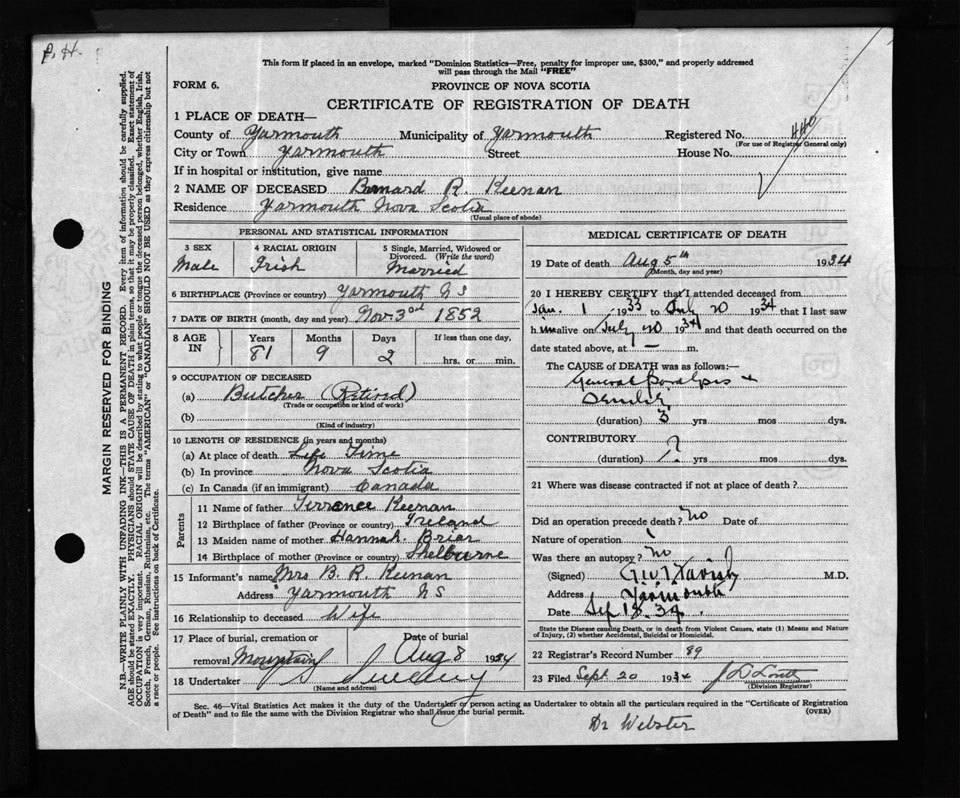 P. H.
This form if placed in an envelope, marked "Dominion Statistics—Free, penalty for improper use, $300," and properly addressed
will pass through the Mail "FREE"
FORM 6.
PROVINCE OF NOVA SCOTIA
CERTIFICATE OF REGISTRATION OF DEATH
1 PLACE OF DEATH—
County of Yarmouth Municipality of Yarmouth Registered No.
(For use of Registrar General only)
City or Town Yarmouth Street House No.
If in hospital or institution, give name
2 NAME OF DECEASED Bernard R. Keenan
Residence Yarmouth Nova Scotia
(Usual place of abode)
PERSONAL AND STATISTICAL INFORMATION
3 SEX
Male
4 RACIAL ORIGIN
Irish
5 Single, Married, Widowed or
Divorced. (Write the word)
Married
6 BIRTHPLACE (Province or country) Yarmouth NS
7 DATE OF BIRTH (month, day and year) Nov. 3rd 1852
8 AGE
IN
Years Months Days If less than one day,
81 9 2 hrs. or min.
9 OCCUPATION OF DECEASED
(a) Butcher (Retired)
(Trade or occupation or kind of work)
(b)
(Kind of industry)
10 LENGTH OF RESIDENCE (in years and months)
(a) At place of death Life Time
(b) In province Nova Scotia
(c) In Canada (if an immigrant) Canada
Parents
11 Name of father Terrence Keenan
12 Birthplace of father (Province or country) Ireland
13 Maiden name of mother Hannah Briar
14 Birthplace of mother (Province or country) Shelburne
15 Informant's name Mrs B. R. Keenan
Address Yarmouth NS
16 Relationship to deceased Wife
17 Place of burial, cremation or Date of burial
removal Mountain Aug 8 1934
18 Undertaker Sweeny
(Name and address)
MEDICAL CERTIFICATE OF DEATH
19 Date of death Aug 5th 1934
(Month, day and year)
20 I HEREBY CERTIFY that I attended deceased from
Jan. 1 1933 to July 20 1934 that I last saw
h im alive on July 20 1934 and that death occurred on the
date stated above, at — m.
The CAUSE OF DEATH was as follows:—
General Paralysis +
Senility
(duration) 3 yrs mos dys.
CONTRIBUTORY
(duration) ? yrs mos dys.
21 Where was disease contracted if not at place of death?
Did an operation precede death? No Date of
Nature of operation
Was there an autopsy? No
(Signed) M.D.
Address Yarmouth
Date Sep 18. 34.
State the Disease causing Death, or in death from Violent Causes, state (1) Means and Nature
of Injury, (2) whether Accidental, Suicidal or Homicidal.
22 Registrar's Record Number 89
23 Filed Sept 20 1934
(Division Registrar)
Sec. 46—Vital Statistics Act makes it the duty of the Undertaker or person acting as Undertaker to obtain all the particulars required in the "Certificate of Registration
of Death" and to file the same with the Division Registrar who shall issue the burial permit.
(OVER)
Dr Webster
MARGIN RESERVED FOR BINDING
N.B.—WRITE PLAINLY WITH UNFADING INK—THIS IS A PERMANENT RECORD. Every item of information should be carefully supplied.
AGE should be stated EXACTLY. PHYSICIANS should STATE CAUSE OF DEATH in plain terms, so that it may be properly classified. Exact statement of
OCCUPATION is very important. RACIAL ORIGIN will be described by stating to what people or tongue the deceased person belonged, whether English, Irish,
Scotch, French, German, Russian, Ruthenian, etc. The terms "AMERICAN" or "CANADIAN" SHOULD NOT BE USED as they express citizenship but not
a race or people. See instructions on back of Certificate.